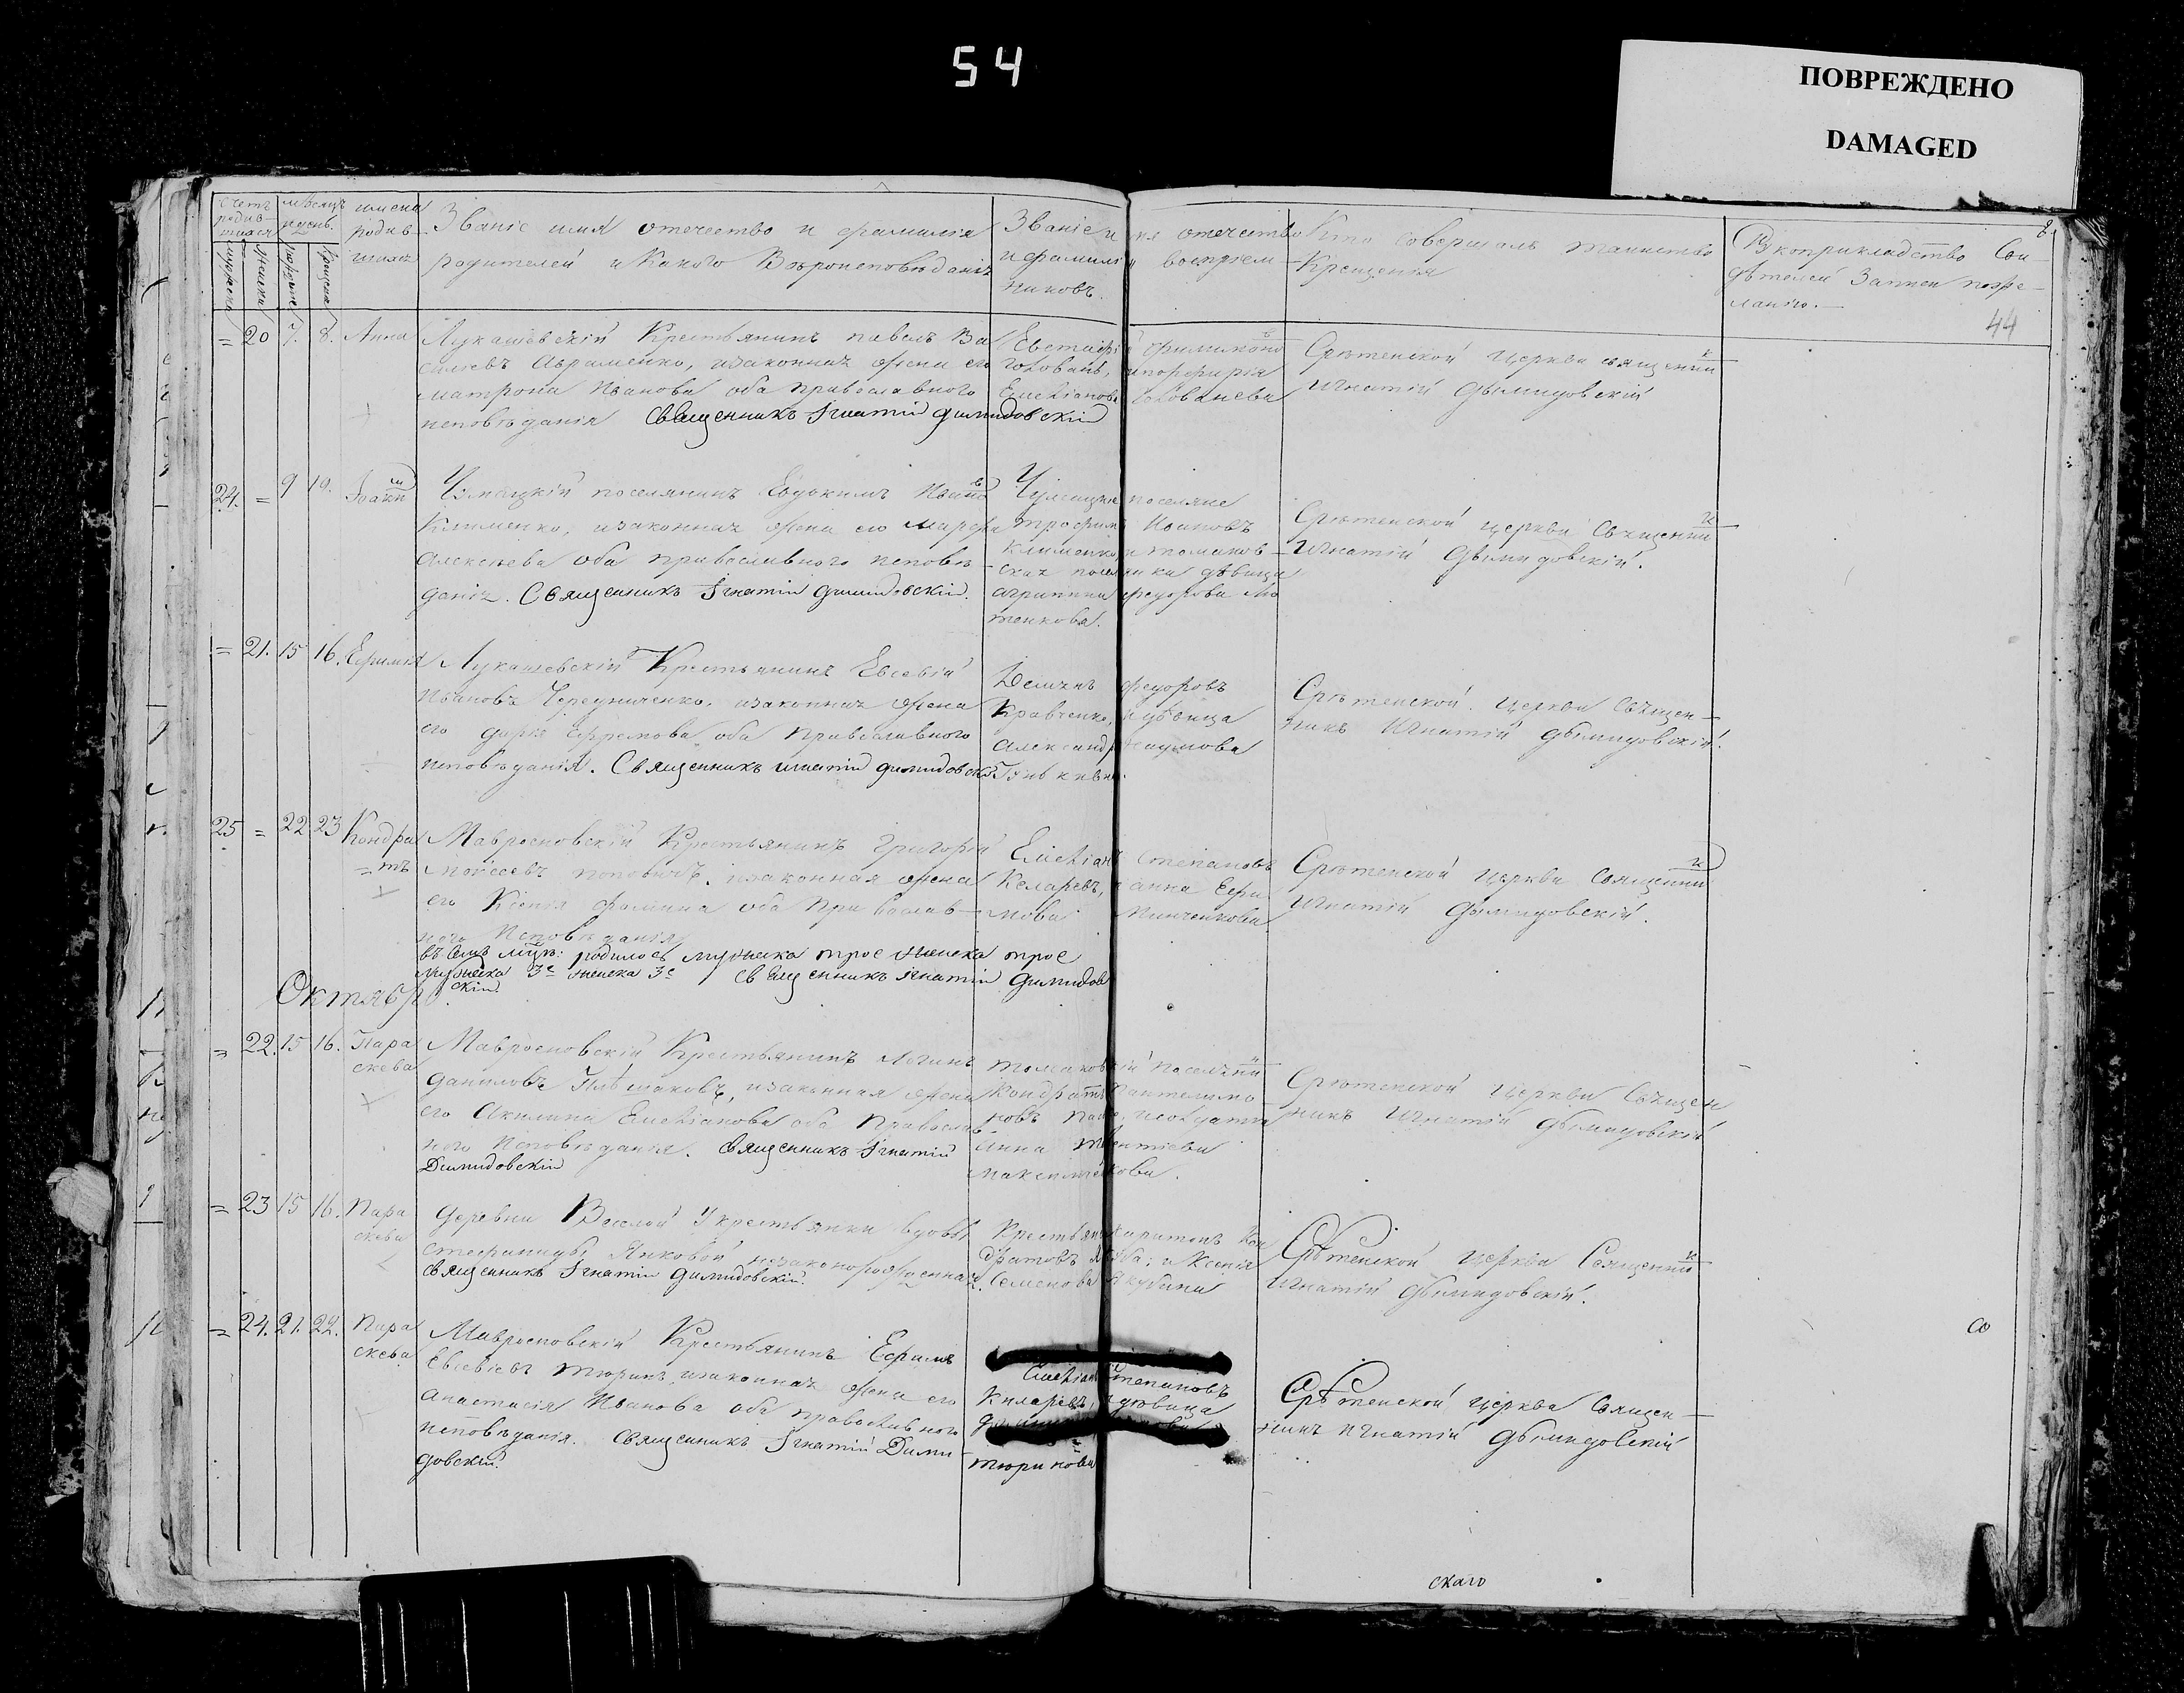 54
ПОВРЕЖДЕНО
DAMAGED
Счетъ родив-шихся
мѣсяцъ и день.
имена родив-шихся
Званіе имя отечество и фамилія
родителей и Какого Вѣроисповѣданія
Званіе имя отечество
и фамилія воспріем-
никовъ.
Кто совершалъ таинство
Крещенія
Рукоприкладство Сви-
дѣтелей Записи по же-
ланію.
44
= 20 7. 8. Анна
Лукашевскій Крестьянинъ павелъ Ва
сильевъ Авраменко, изаконная жена его
матрона Иванова оба православного
исповѣданія Священникъ Игнатій димидовскій
Евстафій филимоно
головань, ипорфирія
Емеліанова Голованева
Срѣтенской Церкви священник
Игнатій дымидовскій
24. = 9 10. Іоан
поселянинъ Евдокимъ Ивано
Клименко, изаконная жена его марфа
Алексѣева оба православного исповѣ-
данія. Священникъ Игнатій димидовскій.
поселяне
трофимъ Ивановъ
Клименко и томаков-
ская поселянка дѣвица
агрипина федорова
тенкова.
Срѣтенской церкви Священник
Игнатій дымидовскій.
= 21. 15 16. Ефимія
Лукашевскій Крестьянинъ Евсевій
Ивановъ Чередниченко, изаконная жена
его дарія Ефремова оба православного
исповѣданія. Священникъ игнатій димидовскій
федоровъ
Кравченко, идѣвица
Александра наумова
Срѣтенской церкви священ-
никъ Игнатій дымидовскій.
25 = 22 23 Кондра
=тъ
Мавросновскій Крестьянинъ Григорій
Моисеевъ поповичъ, изаконная жена
его Ксенія фомина оба православ-
ного исповѣданія
въ семъ мцѣ: родилось мужеска трое женска трое
мужеска 3е женска 3е Священникъ Игнатій димидов
скій
Емеліанъ степановъ
Келаревъ, и анна Ефи
мова Пинченкова
Срѣтенской церкви Священник
Игнатій дымидовскій.
Октябрь
= 22. 15 16. Пара
скева
Мавросновскій Крестьянинъ логинъ
даниловъ изаконная жена
его Акилина Емеліанова оба Православ-
ного исповѣданія. Священникъ Игнатій
Димидовскій
томаковскій поселянин
Кондратъ Пантелимо
новъ
Анна
Срѣтенской Церкви Священ
никъ Игнатій дымидовскій
= 23 15 16. Пара
скева
деревни Веселой у крестьянки вдовы
Стефаниды Яковой незаконорожденная.
священникъ Игнатій димидовскій.
Крестьянинъ харитонъ Кон
дратовъ и Ксенія
Семенова Якубина
Срѣтенской церкви Священник
Игнатій дымидовскій.
= 24. 21. 22. Пара
скева
Мавросновскій Крестьянинъ Ефимъ
Евсевіевъ тюринъ, изаконная жена его
анастасія Иванова оба православного
исповѣданія. Священникъ Игнатій Дими-
довскій.
Емеліанъ Степановъ
Киларевъ, идѣвица
тюринова
Срѣтенской церкви Священ-
никъ Игнатій дымидовскій
со
скаго